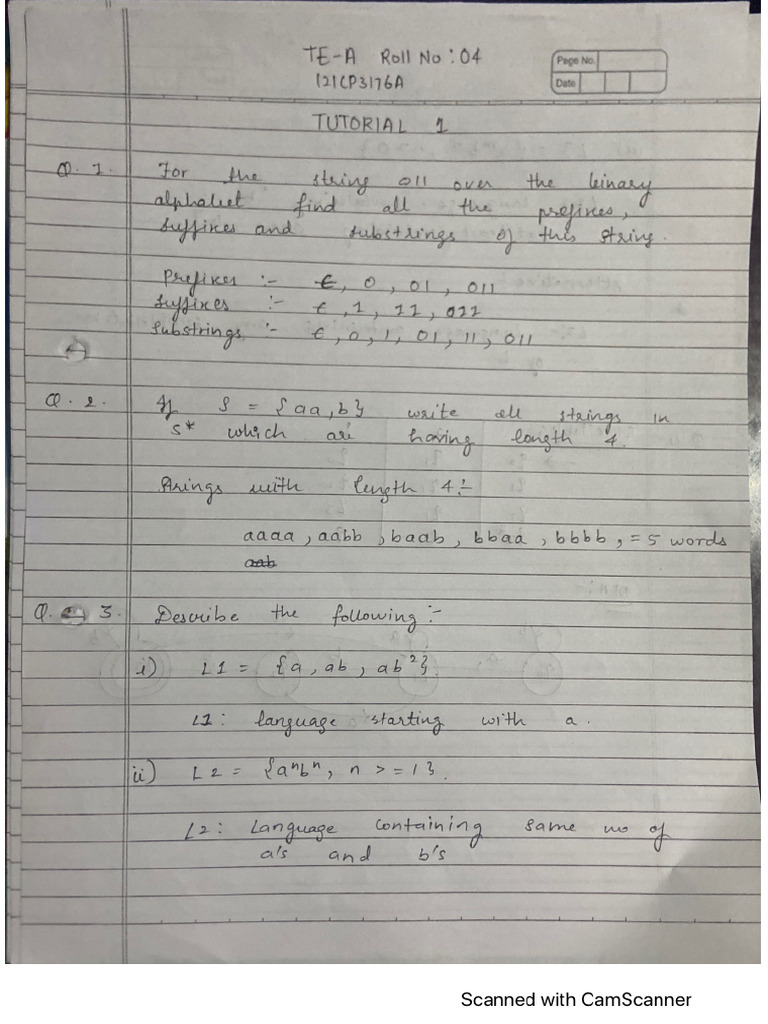 TE-A Roll No: 04
121CP3176A
Page No.
Date
TUTORIAL 1
Q. 1. For the string 011 over the binary
alphabet find all the prefixes,
suffixes and substrings of this string.
Prefixes :- ϵ, 0, 01, 011
Suffixes :- ϵ, 1, 11, 011
Substrings :- ϵ, 0, 1, 01, 11, 011
Q. 2. If S = {aa, b} write all strings in
S* which are having length 4.
Strings with length 4:-
aaaa, aabb, baab, bbaa, bbbb, = 5 words
aab
Q. 3. Describe the following :-
i) L1 = {a, ab, ab²}
L1: language starting with a.
ii) L2 = {aⁿbⁿ, n >= 1}.
L2: Language containing same no of
a's and b's
Scanned with CamScanner